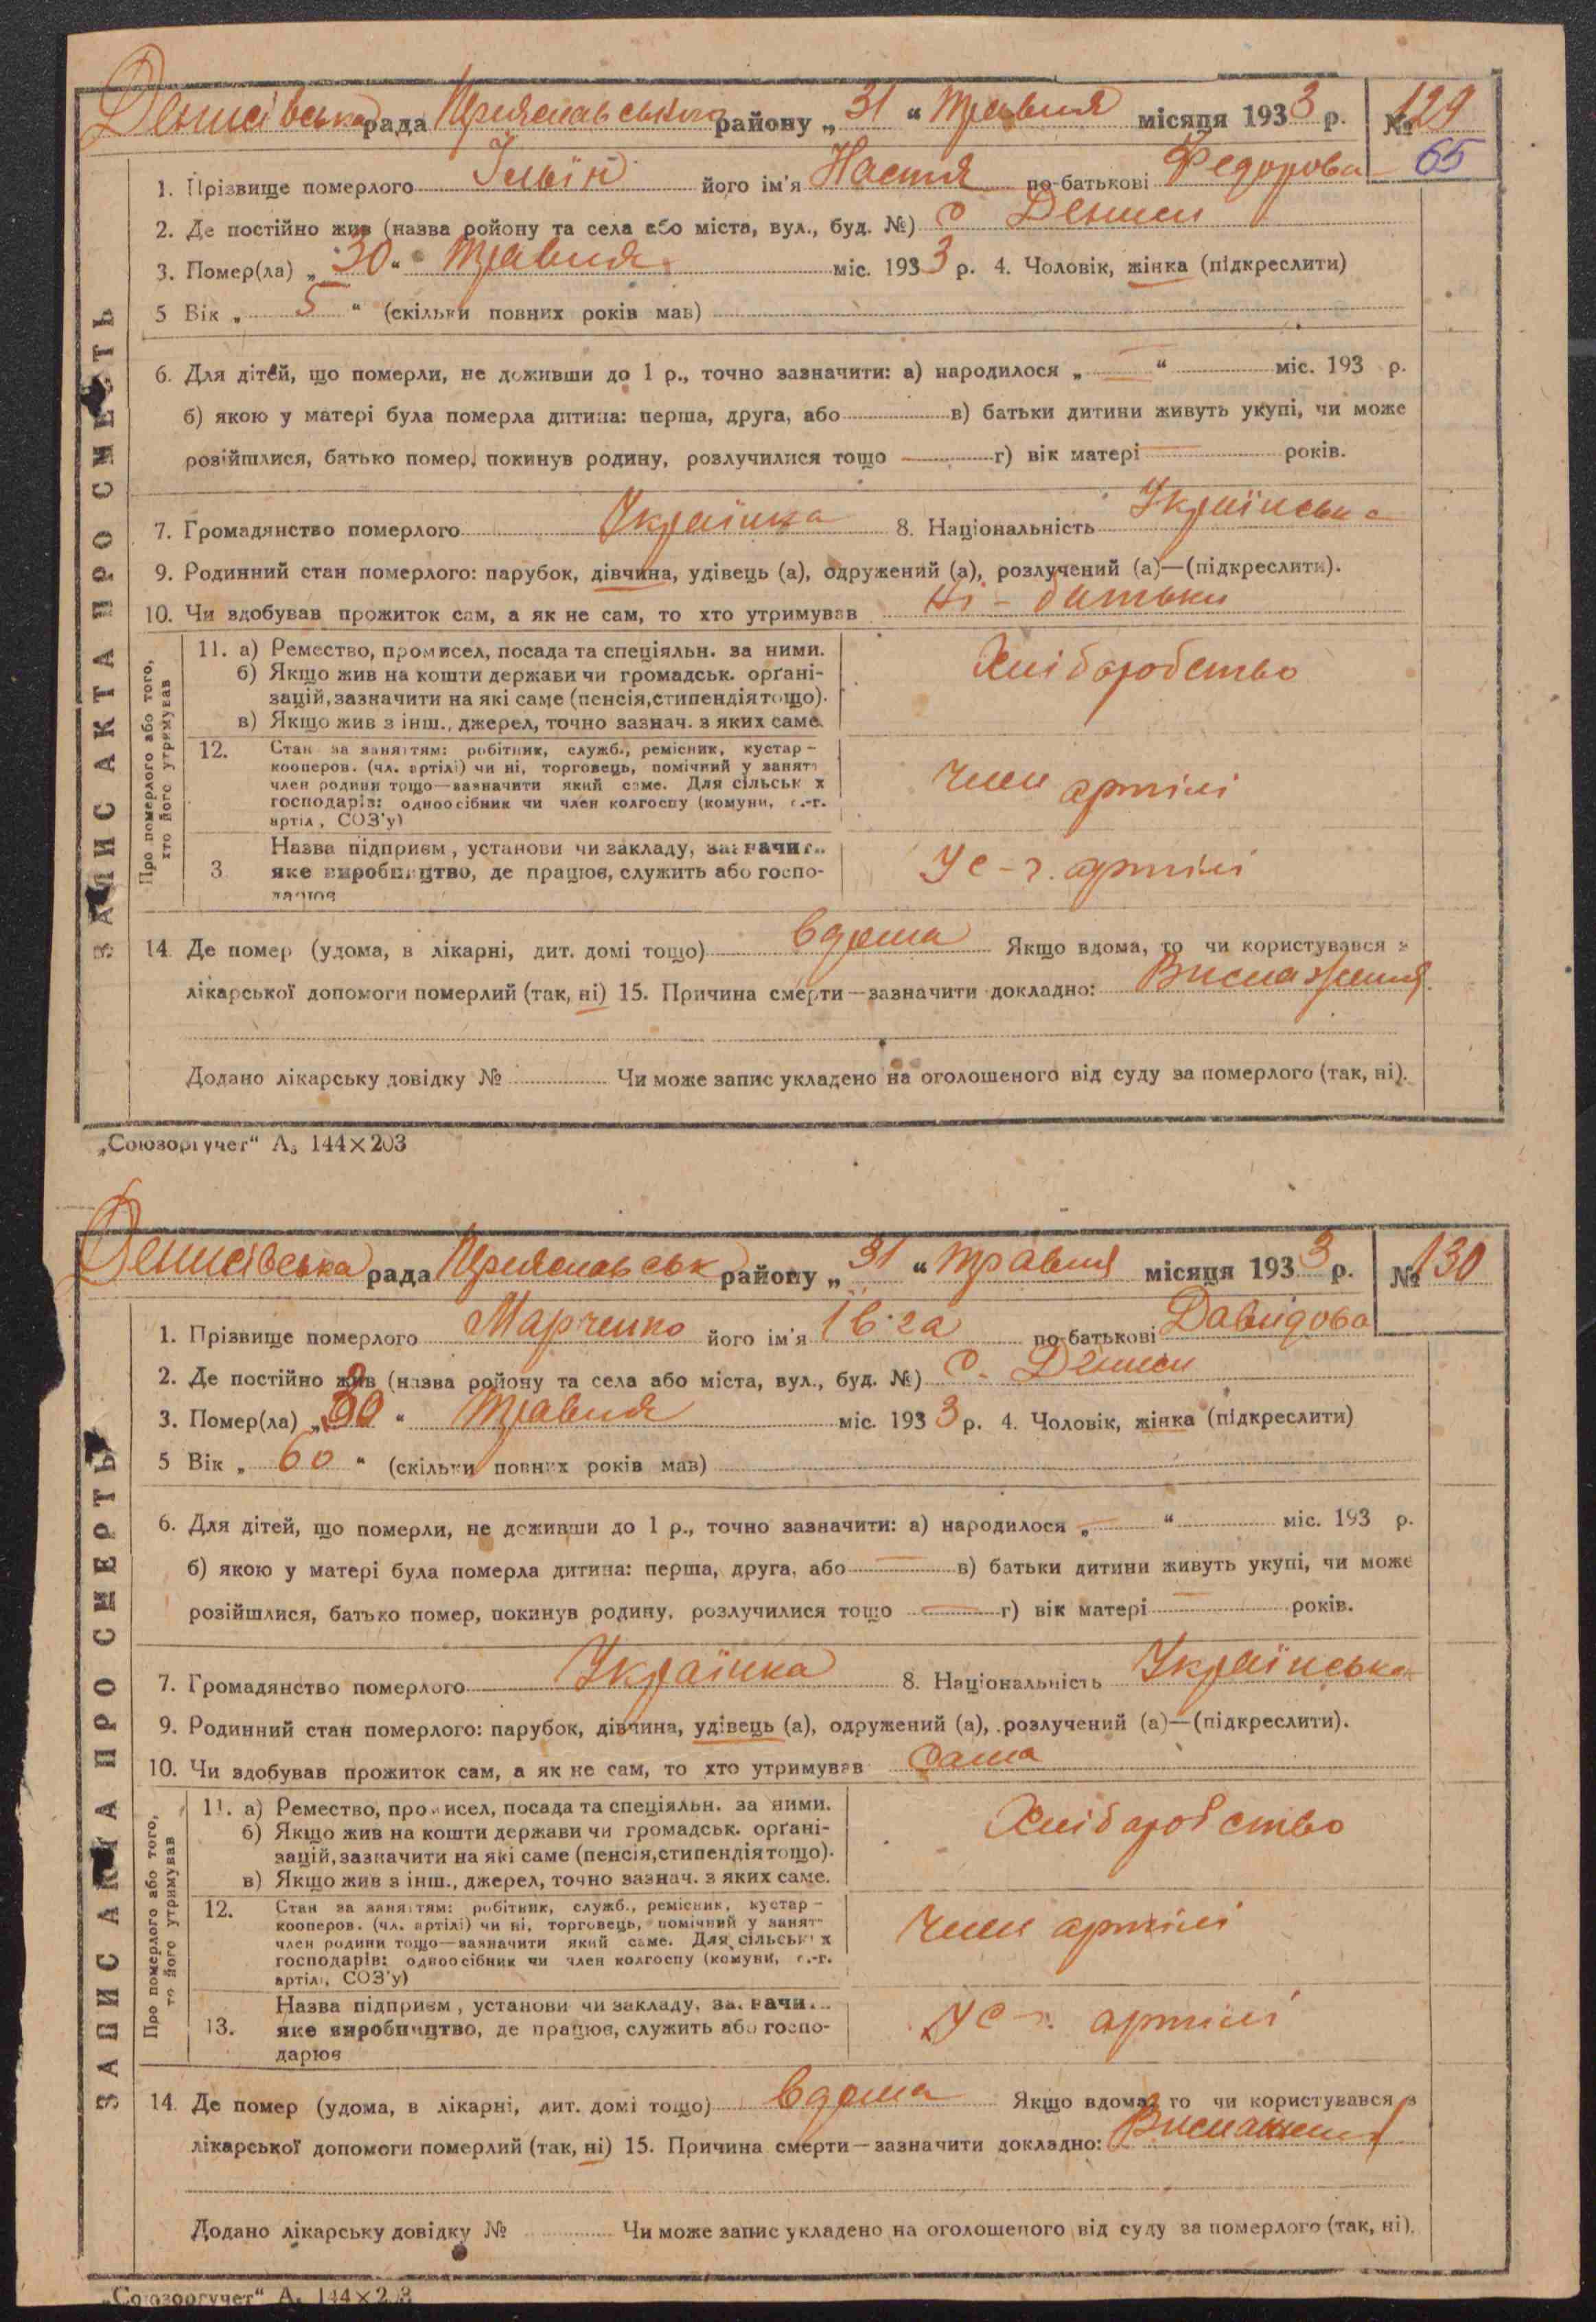 Денисівська рада Переяславського району „31“ травня місяця 1933 р. № 129
65
1. Прізвище померлого Ільїн його ім'я Настя по-батькові Федорова
2. Де постійно жив (назва ройону та села або міста, вул., буд. №) с Дениси
3. Помер(ла) „30“ травня міс. 1933 р. 4. Чоловік, жінка (підкреслити)
5 Вік „5“ (скільки повних років мав)
6. Для дітей, що померли, не доживши до 1 р., точно зазначити: а) народилося „—“ міс. 193 р.
б) якою у матері була померла дитина: перша, друга, або в) батьки дитини живуть укупі, чи може
розійшлися, батько помер, покинув родину, розлучилися тощо — г) вік матері — років.
7. Громадянство померлого Українка 8. Національність Українська
9. Родинний стан померлого: парубок, дівчина, удівець (а), одружений (а), розлучений (а)—(підкреслити).
10. Чи здобував прожиток сам, а як не сам, то хто утримував Ні - батьки
ЗАПИС АКТА ПРО СМЕРТЬ
Про померлого або того,
хто його утримував
11. а) Ремество, промисел, посада та спеціяльн. за ними.
б) Якщо жив на кошти держави чи громадськ. орґані-
зацій, зазначити на які саме (пенсія, стипендія тощо).
в) Якщо жив з інш., джерел, точно зазнач. з яких саме.
Хліборобство
12. Стан за заняттям: робітник, служб., ремісник, кустар —
кооперов. (чл. артілі) чи ні, торговець, помічний у занятт
член родини тощо—зазначити який саме. Для сільськ х
господарів: одноосібник чи член колгоспу (комуни, с.-г.
артіл, СОЗ'у)
член артілі
3 Назва підприєм, установи чи закладу, зазначити
яке виробництво, де працює, служить або госпо-
дарює
У с-г. артілі
14. Де помер (удома, в лікарні, дит. домі тощо) вдома Якщо вдома, то чи користувався з
лікарської допомоги померлий (так, ні) 15. Причина смерти—зазначити докладно: Виснаження
Додано лікарську довідку № Чи може запис укладено на оголошеного від суду за померлого (так, ні).
„Союзоргучет“ А₅ 144×203
Денисівська рада Переяславськ району „31“ травня місяця 1933 р. № 130
1. Прізвище померлого Марченко його ім'я Івга по-батькові Давидова
2. Де постійно жив (назва ройону та села або міста, вул., буд. №) с. Дениси
3. Помер(ла) „30“ травня міс. 1933 р. 4. Чоловік, жінка (підкреслити)
5 Вік „60“ (скільки повних років мав)
6. Для дітей, що померли, не доживши до 1 р., точно зазначити: а) народилося „—“ міс. 193 р.
б) якою у матері була померла дитина: перша, друга, або — в) батьки дитини живуть укупі, чи може
розійшлися, батько помер, покинув родину, розлучилися тощо — г) вік матері — років.
7. Громадянство померлого Українка 8. Національність Українська
9. Родинний стан померлого: парубок, дівчина, удівець (а), одружений (а), розлучений (а)—(підкреслити).
10. Чи здобував прожиток сам, а як не сам, то хто утримував Сама
ЗАПИС АКТА ПРО СМЕРТЬ
Про померлого або того,
то його утримував
11. а) Ремество, промисел, посада та спеціяльн. за ними.
б) Якщо жив на кошти держави чи громадськ. орґані-
зацій, зазначити на які саме (пенсія, стипендія тощо).
в) Якщо жив з інш., джерел, точно зазнач. з яких саме.
Хліборобство
12. Стан за заняттям: робітник, служб., ремісник, кустар —
кооперов. (чл. артілі) чи ні, торговець, помічний у занят
член родини тощо—зазначити який саме. Для сільськ х
господарів: одноосібник чи член колгоспу (комуни, с.-г.
артілі, СОЗ'у)
член артілі
13. Назва підприєм, установи чи закладу, зазначи
яке виробництво, де працює, служить або госпо-
дарює
У с-г. артілі
14. Де помер (удома, в лікарні, дит. домі тощо) вдома Якщо вдома, то чи користувався з
лікарської допомоги померлий (так, ні) 15. Причина смерти—зазначити докладно: Виснаження
Додано лікарську довідку № Чи може запис укладено на оголошеного від суду за померлого (так, ні).
„Союзоргучет“ А₅ 144×203